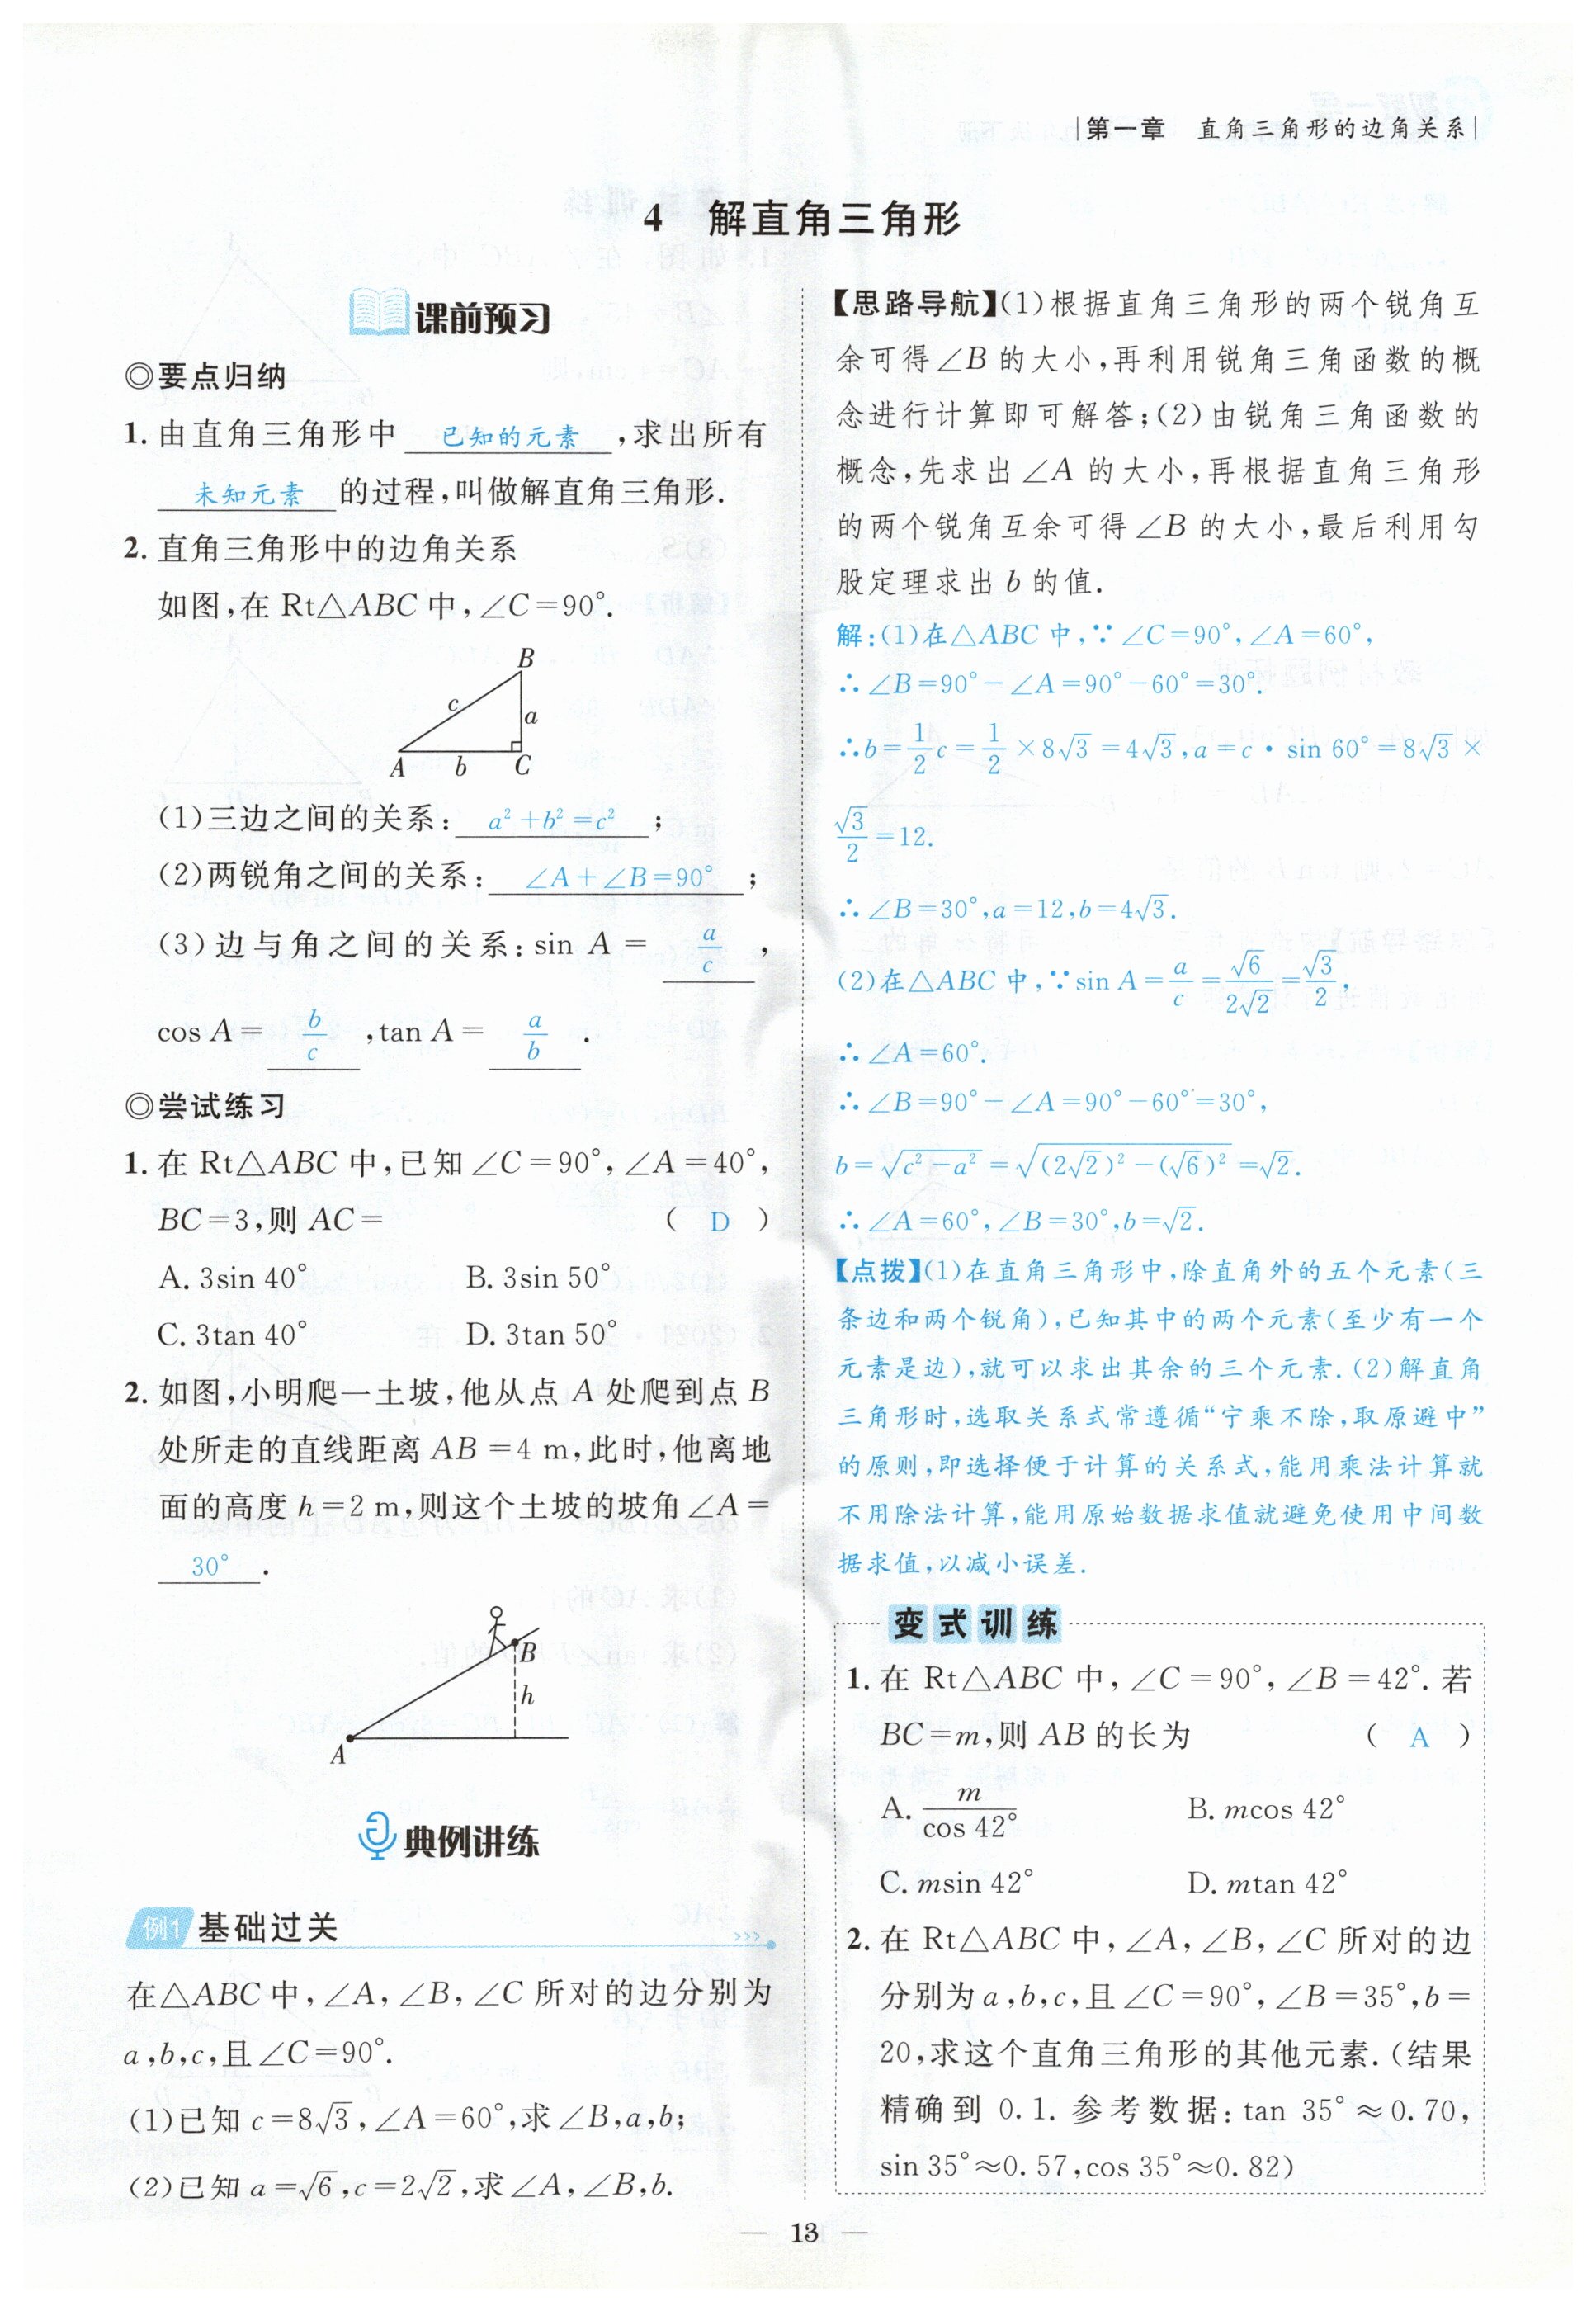 |第一章 直角三角形的边角关系|
4 解直角三角形
课前预习
◎要点归纳
1. 由直角三角形中 已知的元素 ,求出所有
未知元素 的过程,叫做解直角三角形.
2. 直角三角形中的边角关系
如图,在 Rt△ABC 中,∠C=90°.
B
c
a
A b C
(1)三边之间的关系: a²+b²=c² ;
(2)两锐角之间的关系: ∠A+∠B=90° ;
(3)边与角之间的关系:sin A= a/c ,
cos A= b/c ,tan A= a/b .
◎尝试练习
1. 在 Rt△ABC 中,已知∠C=90°,∠A=40°,
BC=3,则 AC= ( D )
A. 3sin 40° B. 3sin 50°
C. 3tan 40° D. 3tan 50°
2. 如图,小明爬一土坡,他从点 A 处爬到点 B
处所走的直线距离 AB=4 m,此时,他离地
面的高度 h=2 m,则这个土坡的坡角∠A=
30° .
B
h
A
典例讲练
例1 基础过关
在△ABC 中,∠A,∠B,∠C 所对的边分别为
a,b,c,且∠C=90°.
(1)已知 c=8√3,∠A=60°,求∠B,a,b;
(2)已知 a=√6,c=2√2,求∠A,∠B,b.
【思路导航】(1)根据直角三角形的两个锐角互
余可得∠B 的大小,再利用锐角三角函数的概
念进行计算即可解答;(2)由锐角三角函数的
概念,先求出∠A 的大小,再根据直角三角形
的两个锐角互余可得∠B 的大小,最后利用勾
股定理求出 b 的值.
解:(1)在△ABC 中,∵∠C=90°,∠A=60°,
∴∠B=90°-∠A=90°-60°=30°.
∴b=1/2 c=1/2×8√3=4√3,a=c·sin 60°=8√3×
√3/2=12.
∴∠B=30°,a=12,b=4√3.
(2)在△ABC 中,∵sin A=a/c=√6/2√2=√3/2,
∴∠A=60°.
∴∠B=90°-∠A=90°-60°=30°,
b=√(c²-a²)=√((2√2)²-(√6)²)=√2.
∴∠A=60°,∠B=30°,b=√2.
【点拨】(1)在直角三角形中,除直角外的五个元素(三
条边和两个锐角),已知其中的两个元素(至少有一个
元素是边),就可以求出其余的三个元素.(2)解直角
三角形时,选取关系式常遵循“宁乘不除,取原避中”
的原则,即选择便于计算的关系式,能用乘法计算就
不用除法计算,能用原始数据求值就避免使用中间数
据求值,以减小误差.
变式训练
1. 在 Rt△ABC 中,∠C=90°,∠B=42°. 若
BC=m,则 AB 的长为 ( A )
A. m/cos 42° B. mcos 42°
C. msin 42° D. mtan 42°
2. 在 Rt△ABC 中,∠A,∠B,∠C 所对的边
分别为 a,b,c,且∠C=90°,∠B=35°,b=
20,求这个直角三角形的其他元素.(结果
精确到 0.1. 参考数据:tan 35°≈0.70,
sin 35°≈0.57,cos 35°≈0.82)
— 13 —